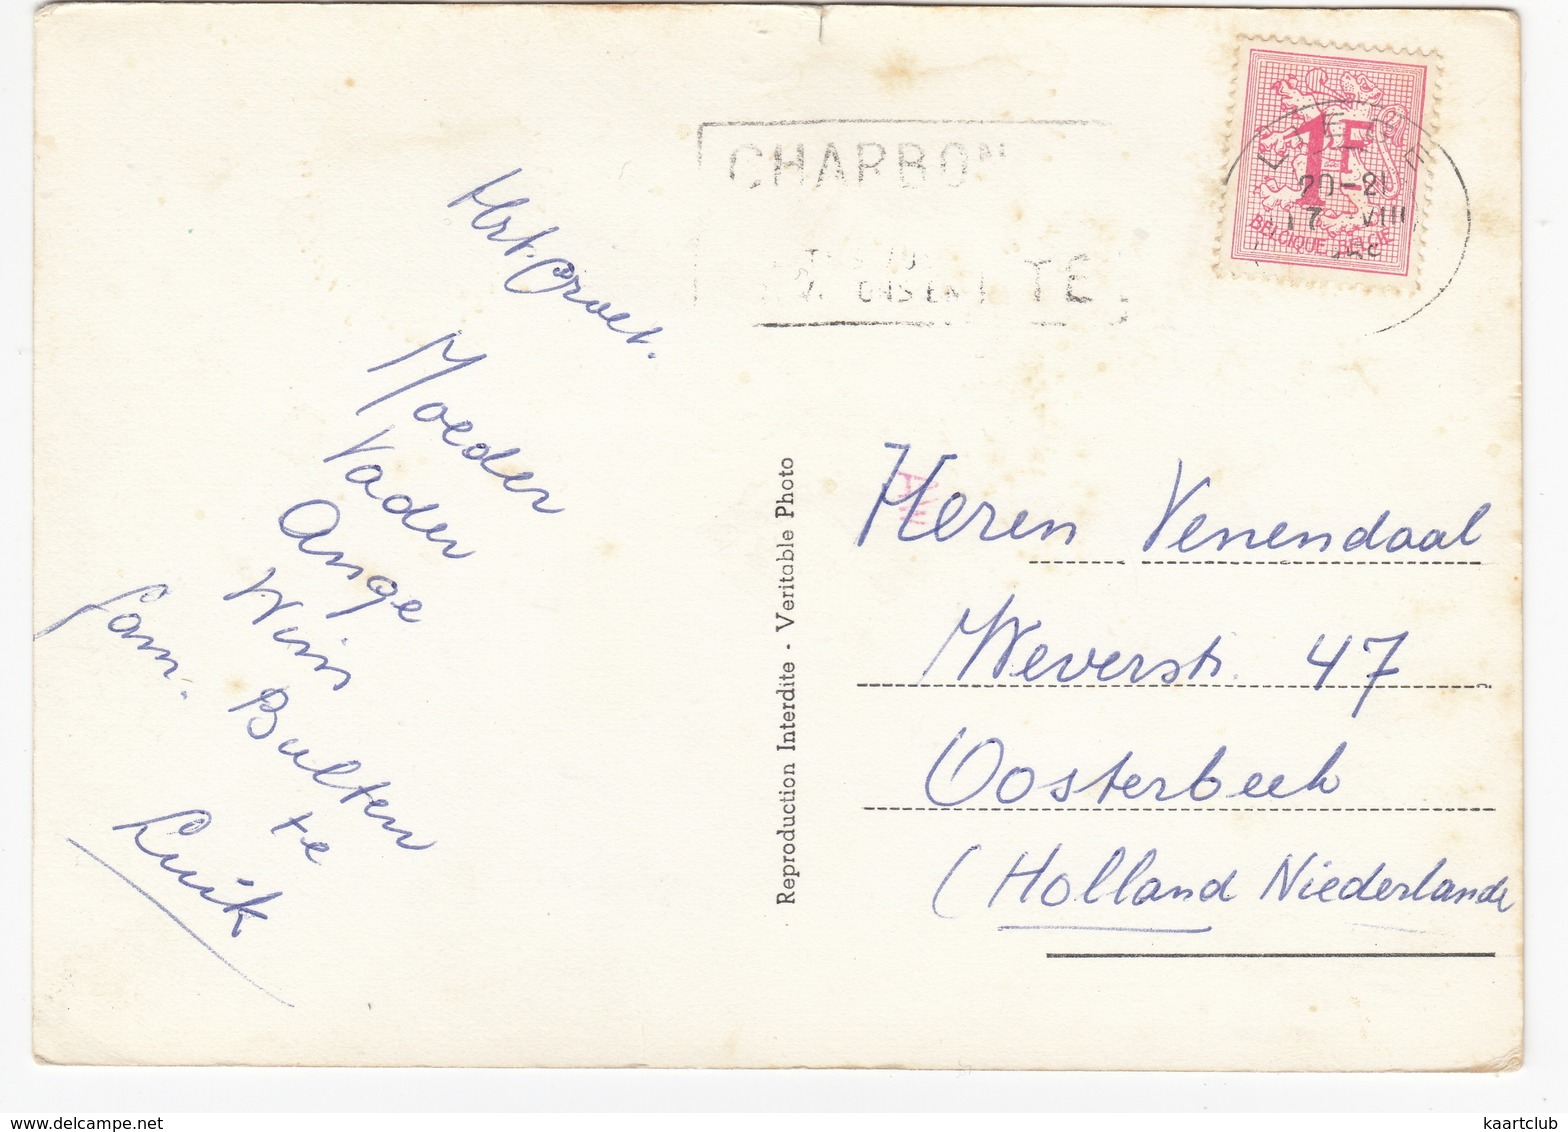 CHARBON
TE
1F
BELGIQUE-BELGIE
20-21
17 VIII
Hrt. Groet.
Moeder
Vader
Ange
Wim
fam. Bulten
te
Luik
Reproduction Interdite - Veritable Photo
Heren Venendaal
Weverstr. 47
Oosterbeek
(Holland Niederlande
kaartclub